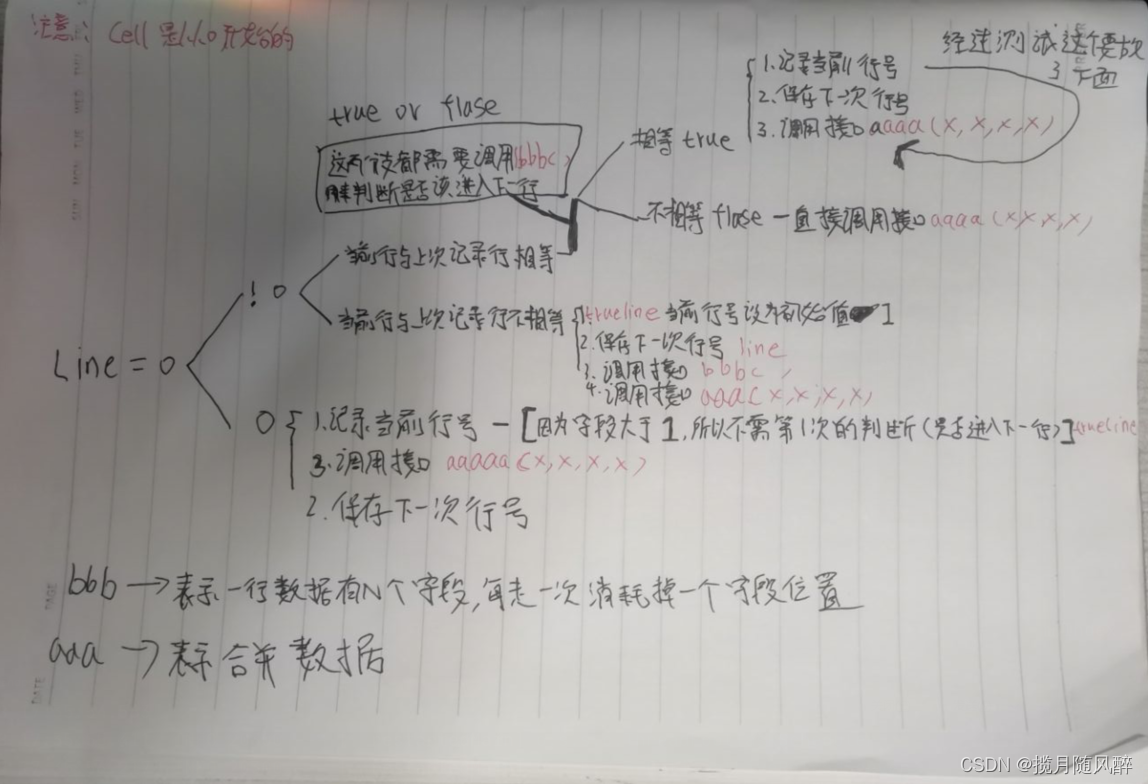 注意: Cell 是从0开始的
经过测试这个要放
了下面
true or flase
1.记录当前行号
2.保存下一次行号
3.调用接口aaaa(X,X,X,X)
相等true
这两个该都需要调用bbbc)
用来判断是否该进入下一行
不相等flase 一直接调用接口aaaa(X,X,X,X)
当前行与上次记录行相等
! 0
当前行与上次记录行不相等
1.trueline当前行号设为初始值 1
2.保存下一次行号 line
3.调用接口 bbbc,
4.调用接口 aaa(X,X,X,X)
Line = 0
0
1.记录当前行号 - [因为字段大于1,所以不需第1次的判断(是否进入下一行)]trueline
3.调用接口 aaaaa(X,X,X,X)
2.保存下一次行号
bbb → 表示一行数据有N个字段,每走一次消耗掉一个字段位置
aaa → 表示合并数据
PAGE
DATE
CSDN @揽月随风醉